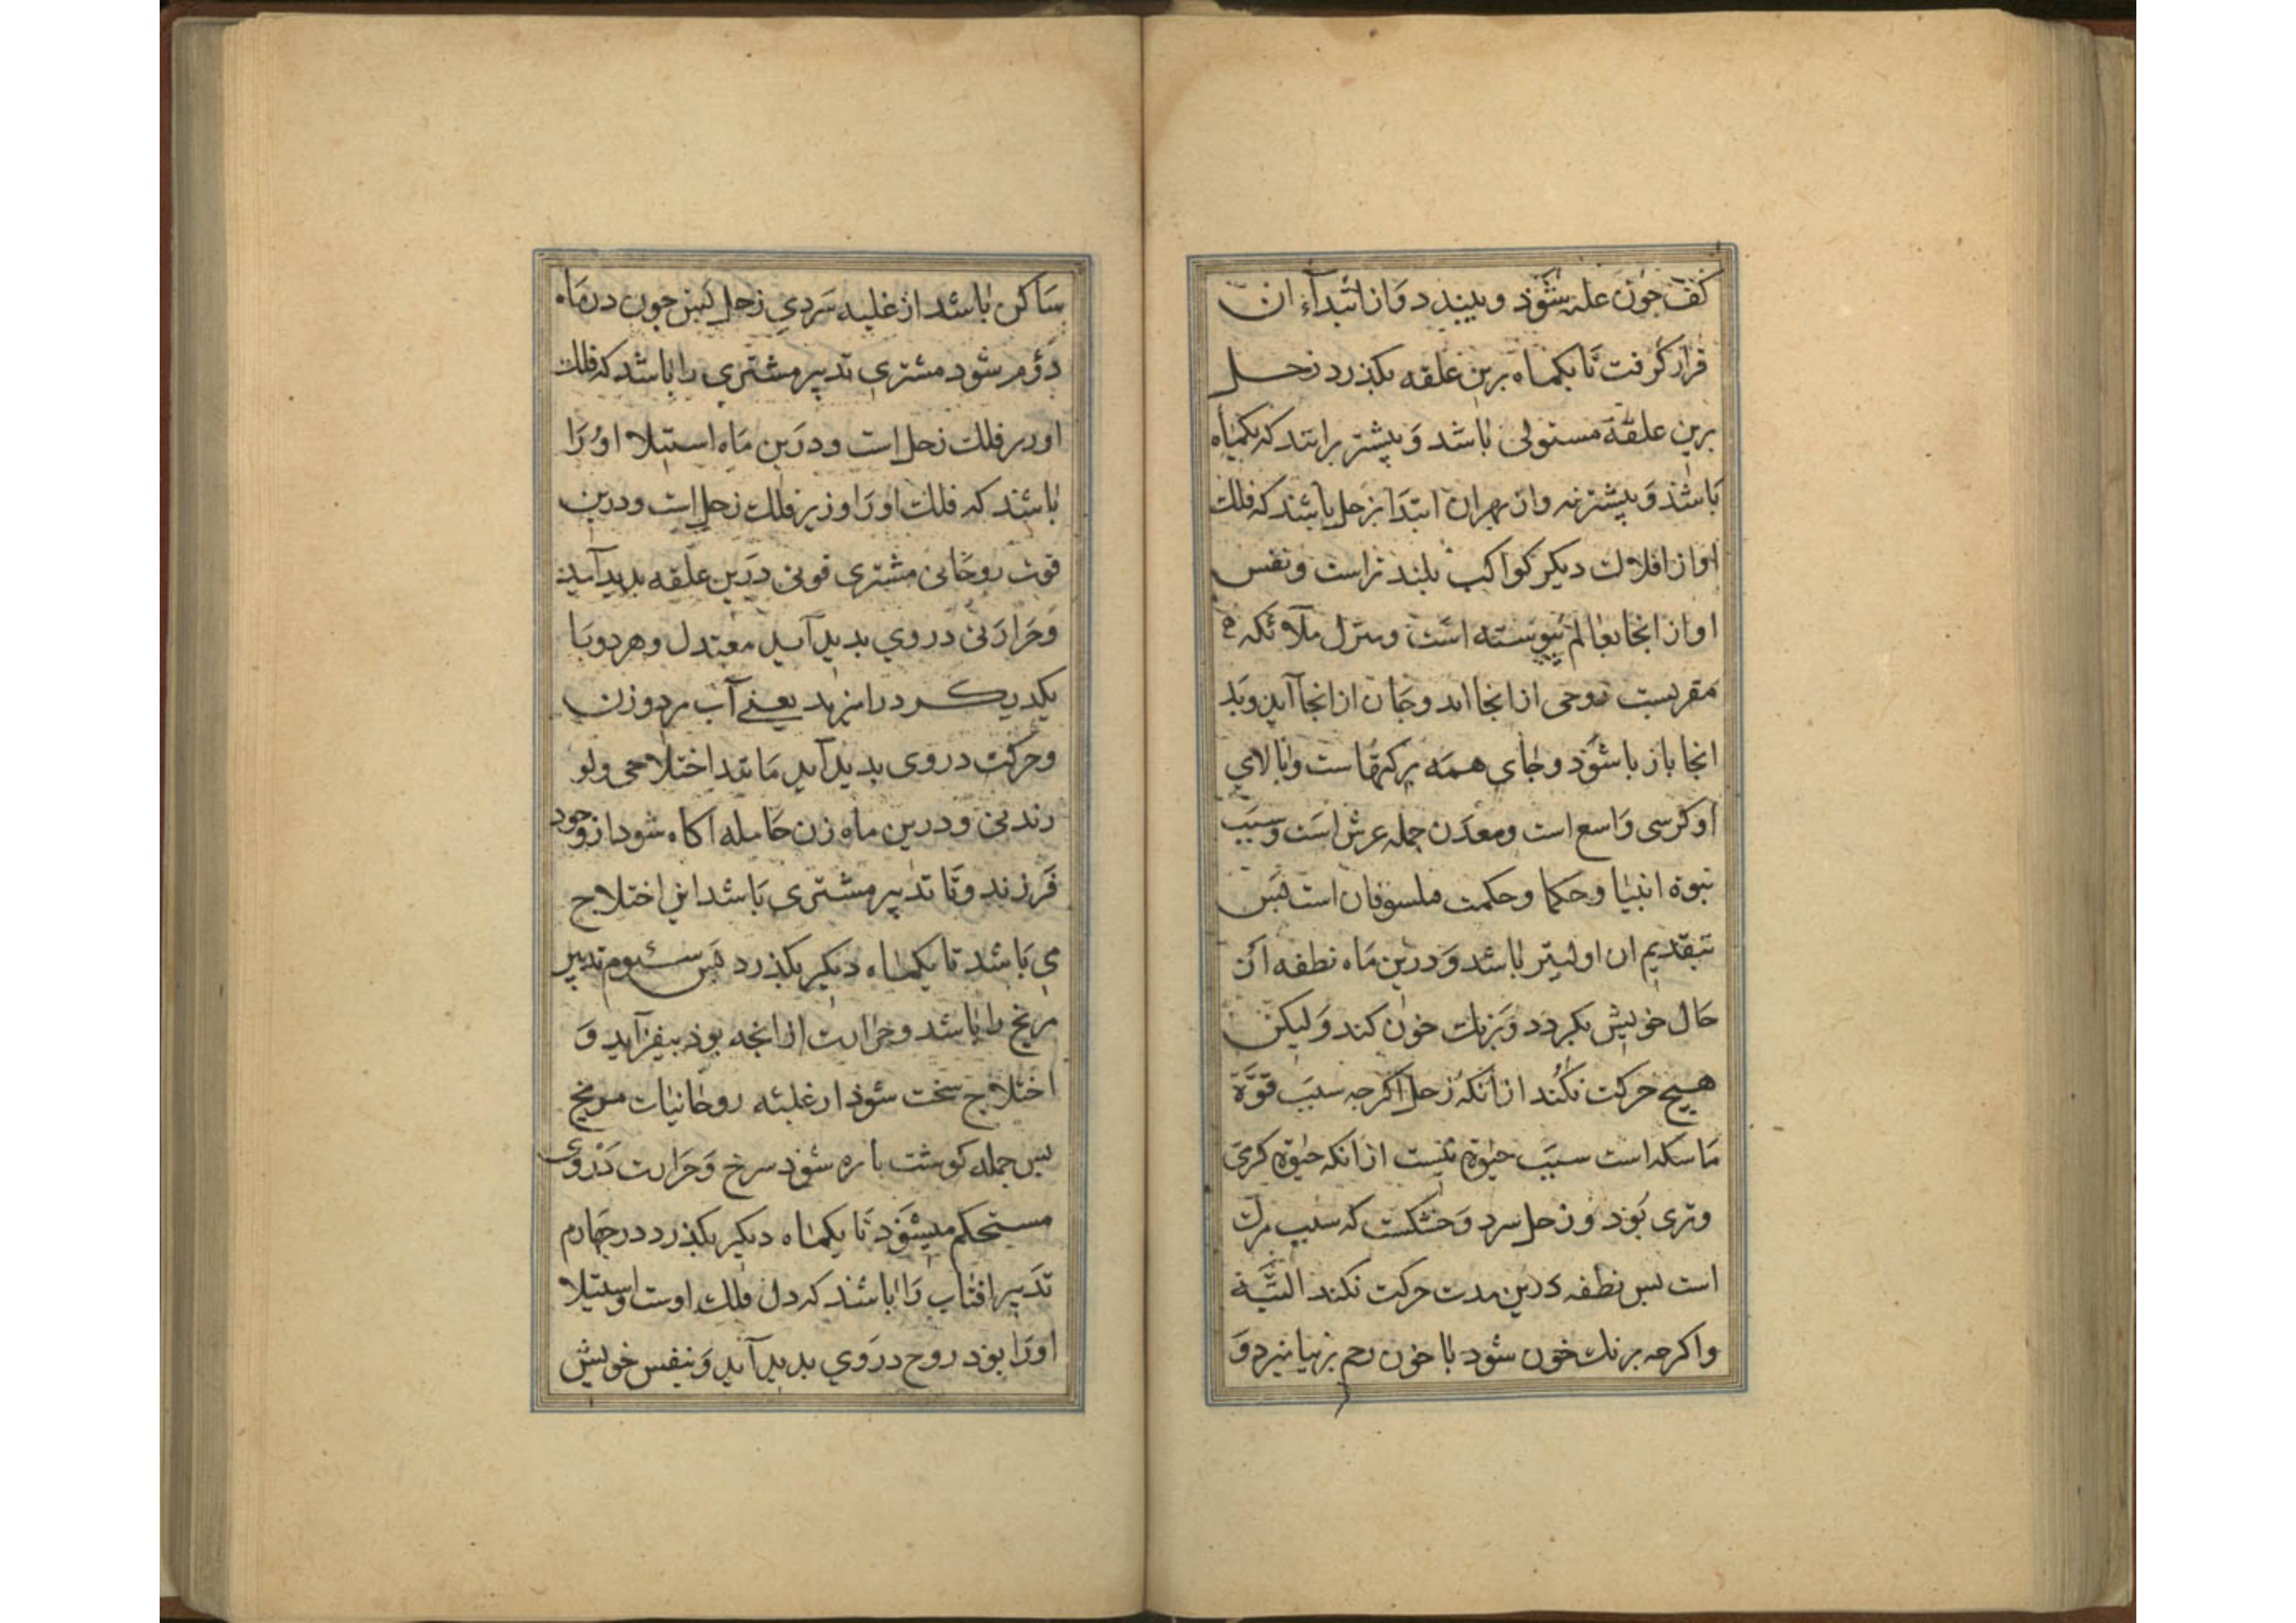 کف چون علقه شود و ببندد و از ابتداء ان
قرار گرفت تا یکماه برین علقه بگذرد زحل
برین علقه مستولی باشد و بیشتر برانند که یکماه
باشد و بیشتر نه و از بهر ان ابتدا بزحل باشد که فلك
او از افلاك دیکر کواکب بلندتر است و نفس
او از انجا بعالم پیوسته است و منزل ملائکه
مقربست روحی از انجا اید و جان از انجا آید و بد
انجا باز باشود و جای همه برکتهاست و بالای
او کرسی واسع است و معدن جمله عرش است و سبب
نبوة انبیا و حکما و حکمت فلسوفان است بس
تبقدیم ان اولیتر باشد و درین ماه نطفه از
حال خویش بکردد و برنك خون کند و لیکن
هیچ حرکت نکند از انکه زحل اکرجه سبب قوة
ماسکه است سبب حیوة نیست از انکه حیوة کرمی
وتری بود و زحل سرد و خشکست که سبب مرك
است بس نطفه درین مدت حرکت نکند البتة
واکرجه برنك خون شود با خون رحم برنیامیزد و
ساکن باشد از غلبه سردی زحل بس جون در ماه
دوم شود مشتری تدبیر مشتری را باشد که فلك
او زیر فلك زحل است و درین ماه استیلا او را
باشند که فلك او را وزیر فلك زحل است و درین
قوت روحانی مشتری قوتی درین علقه بدید آید
و حرارتی در وی بدید آید معتدل و هر دو با
یکدیکر درامیزند یعنی آب مرد و زن
و حرکت در وی بدید آید مانند اختلاجی و لو
زندنی و درین ماه زن حامله اکاه شود از وجود
فرزند و تا تدبیر مشتری باشد این اختلاج
می باشد تا یکماه دیکر بکذرد بس سئیوم تدبیر
مریخ را باشد و حرارت از انجه بود بیفزاید و
اختلاج سخت شود از غلبئه روحانیات مریخ
بس جمله کوشت باره شود سرخ و حرارت در وی
مستحکم میشود تا یکماه دیکر بکذرد در جهارم
تدبیر افتاب را باشند که دل فلك اوست و استیلا
او را بود روح در وی بدید آید و بنفس خویش